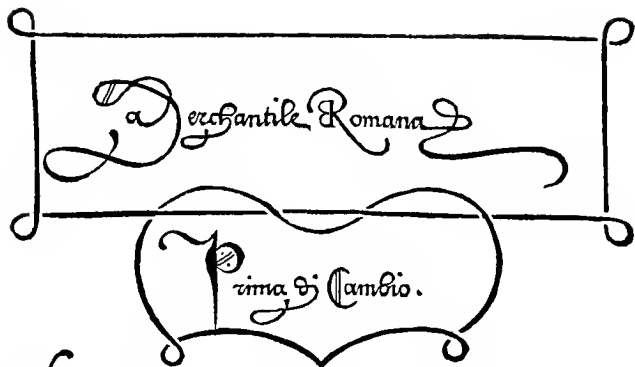 Merchantile Romana
Prima di Cambio.